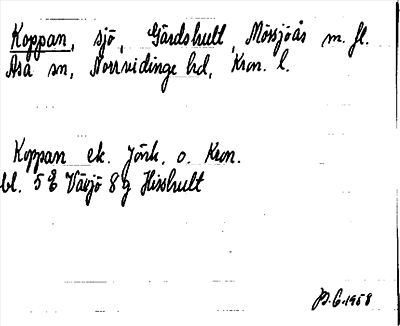 Koppan, sjö, Gårdshult, Mörsjöås m. fl.
Asa sn, Norrvidinge hd, Kron. l.
Koppan ek. Jönk. o. Kron.
bl. 5 E Växjö 8 g Hisshult
1958